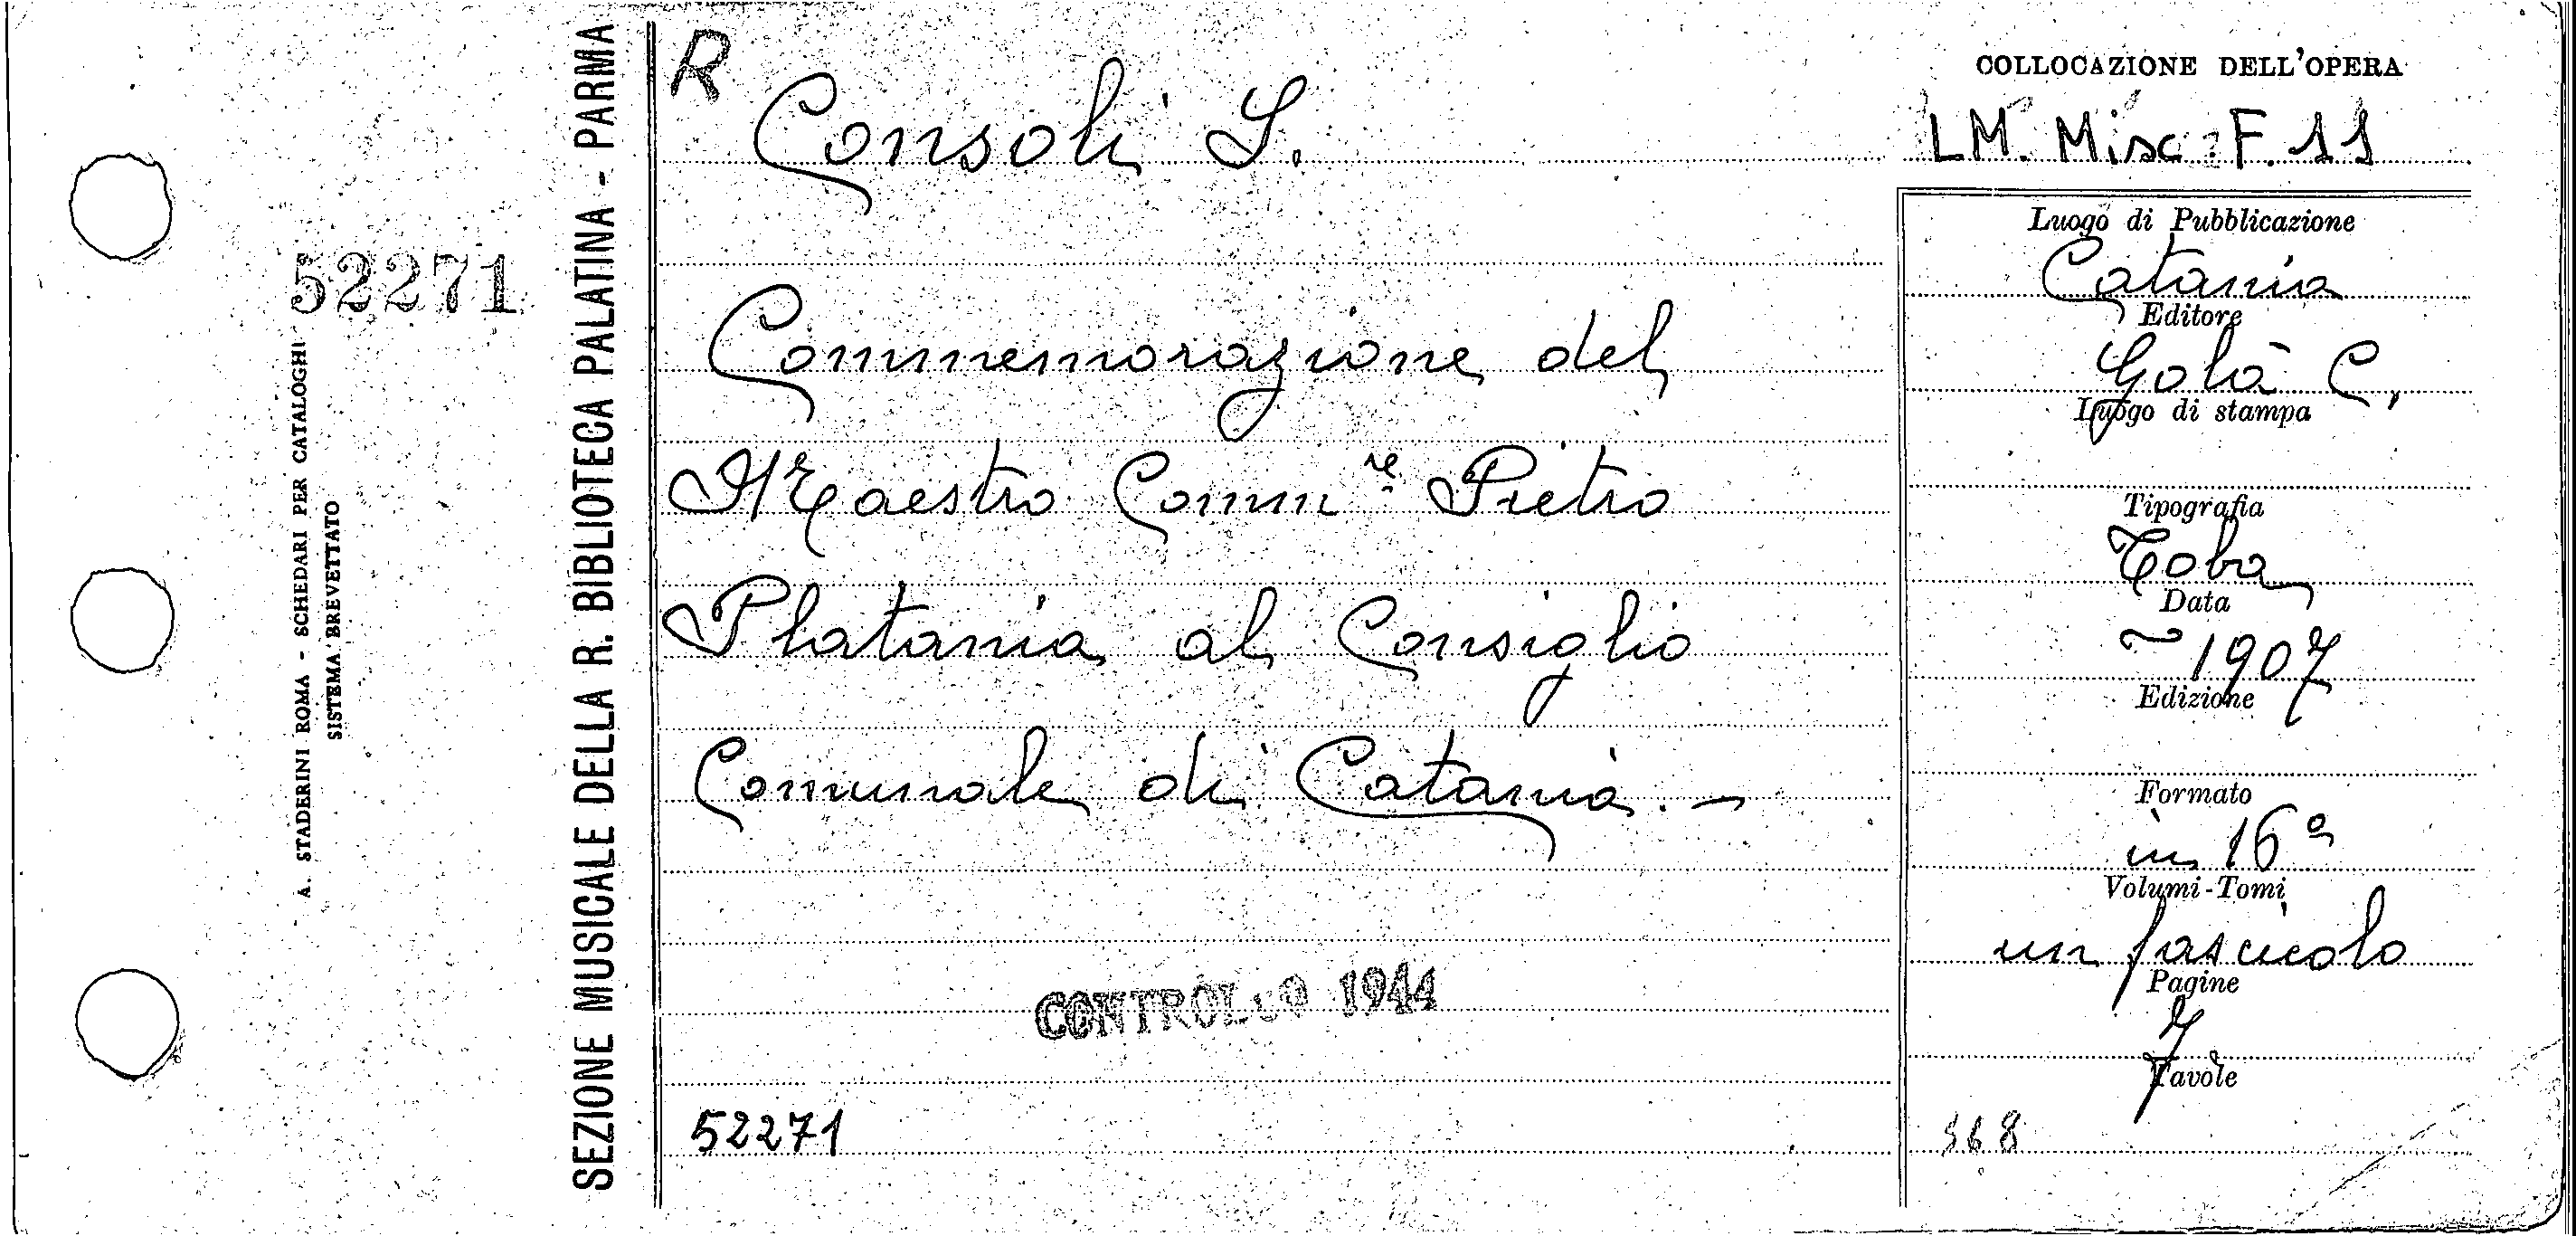 R
Consoli S.
Commemorazione del
Maestro Comm.re Pietro
Platania al Consiglio
Comunale di Catania. —
CONTROLLO 1944
52271
COLLOCAZIONE DELL'OPERA
LM. Misc. F. 11
Luogo di Pubblicazione
Catania
Editore
Galà C.
Luogo di stampa
Tipografia
Data
1907
Edizione
Formato
in 16º
Volumi-Tomi
un fascicolo
Pagine
7
Tavole
368
SEZIONE MUSICALE DELLA R. BIBLIOTECA PALATINA - PARMA
52271
A. STADERINI ROMA - SCHEDARI PER CATALOGHI
SISTEMA BREVETTATO